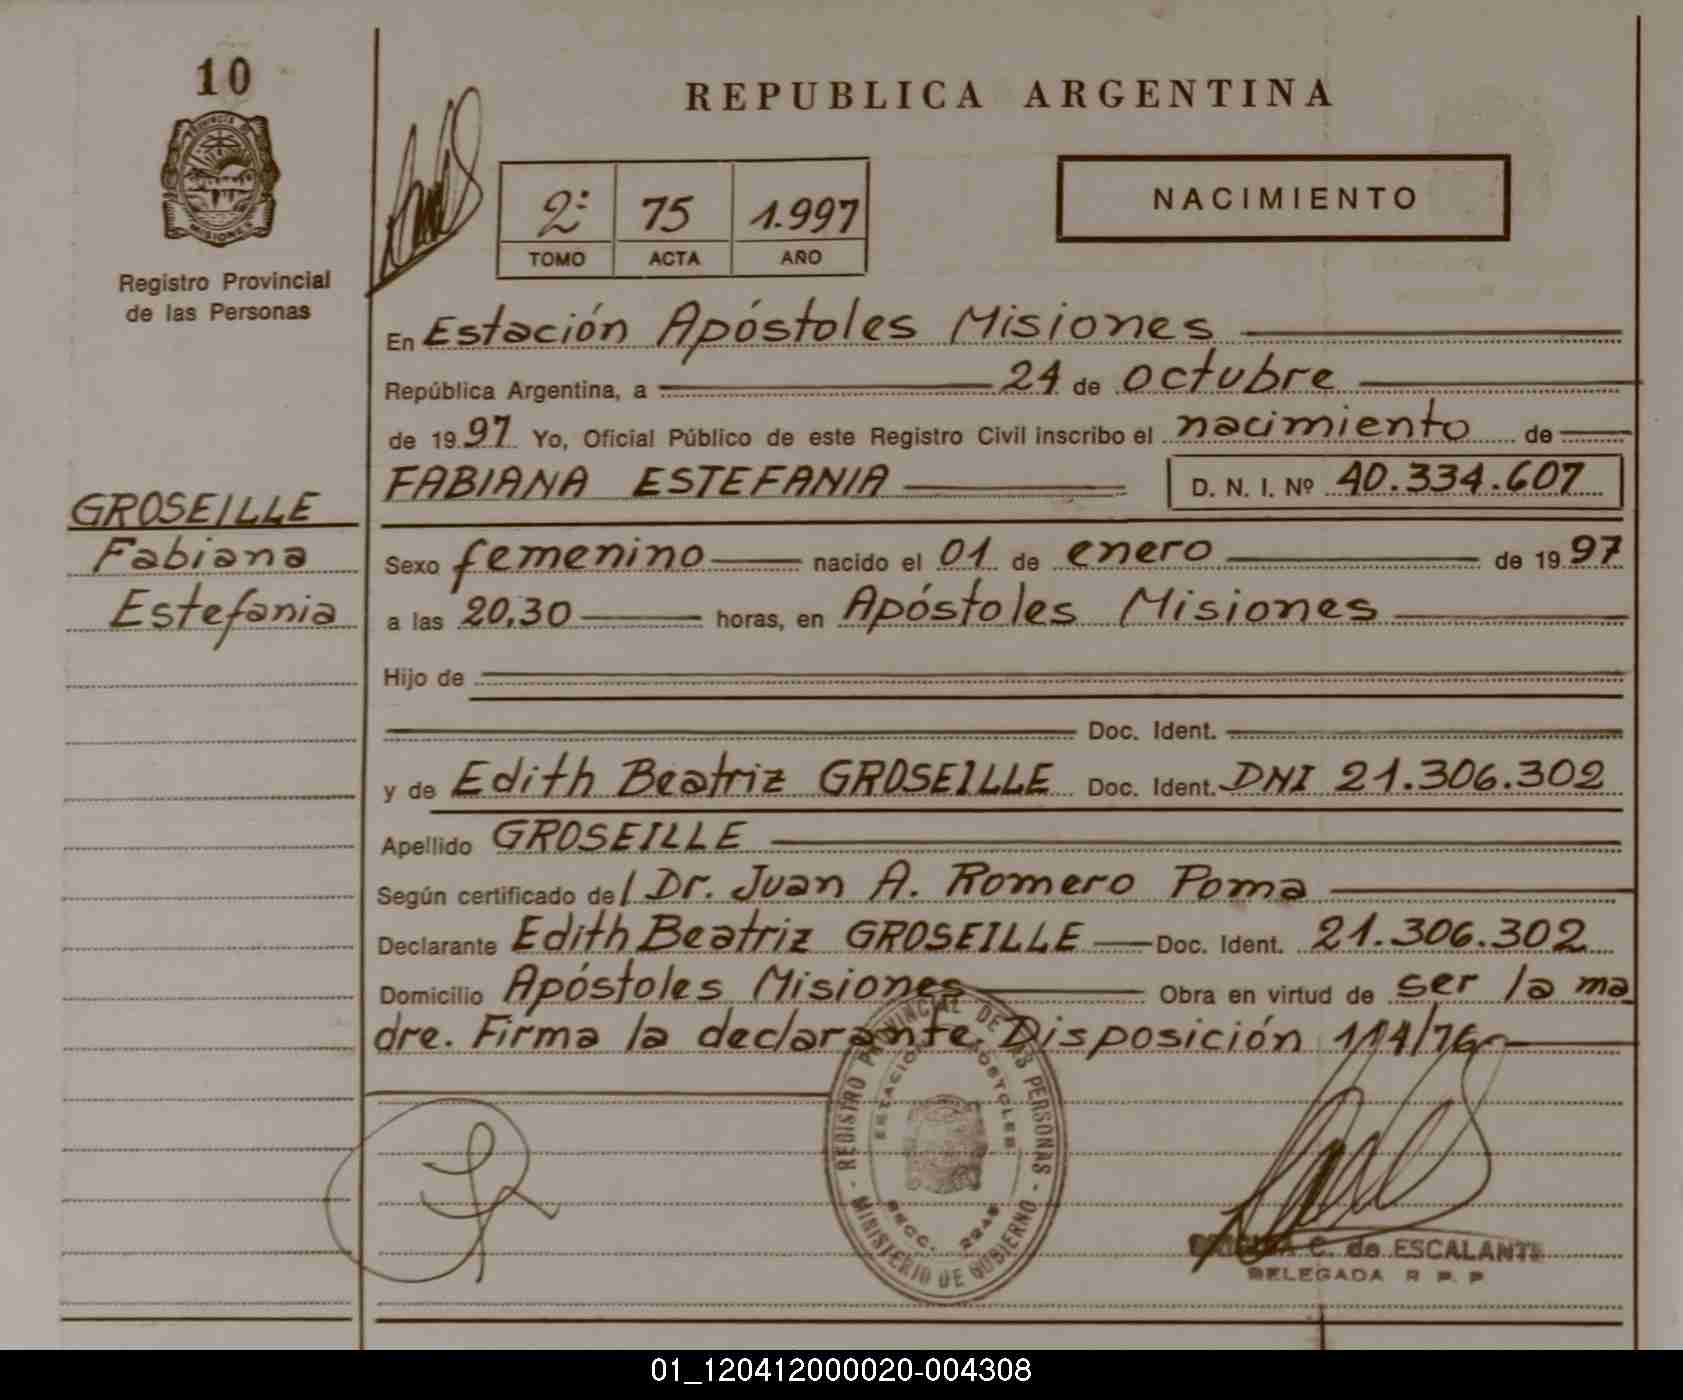 10
PROVINCIA DE
MISIONES
Registro Provincial
de las Personas
GROSEILLE
Fabiana
Estefania
REPUBLICA ARGENTINA
2º 75 1.997
TOMO ACTA AÑO
NACIMIENTO
En Estación Apóstoles Misiones
República Argentina, a 24 de octubre
de 19 97 Yo, Oficial Público de este Registro Civil inscribo el nacimiento de
FABIANA ESTEFANIA D. N. I. Nº 40.334.607
Sexo femenino nacido el 01 de enero de 19 97
a las 20,30 horas, en Apóstoles Misiones
Hijo de
Doc. Ident.
y de Edith Beatriz GROSEILLE Doc. Ident. DNI 21.306.302
Apellido GROSEILLE
Según certificado de/ Dr. Juan A. Romero Poma
Declarante Edith Beatriz GROSEILLE Doc. Ident. 21.306.302
Domicilio Apóstoles Misiones Obra en virtud de ser la ma
dre. Firma la declarante. Disposición 114/76
REGISTRO PROVINCIAL DE LAS PERSONAS
ESTACION APOSTOLES
SECC. 2948
MINISTERIO DE GOBIERNO
C. de ESCALANTE
DELEGADA R P. P
01_120412000020-004308